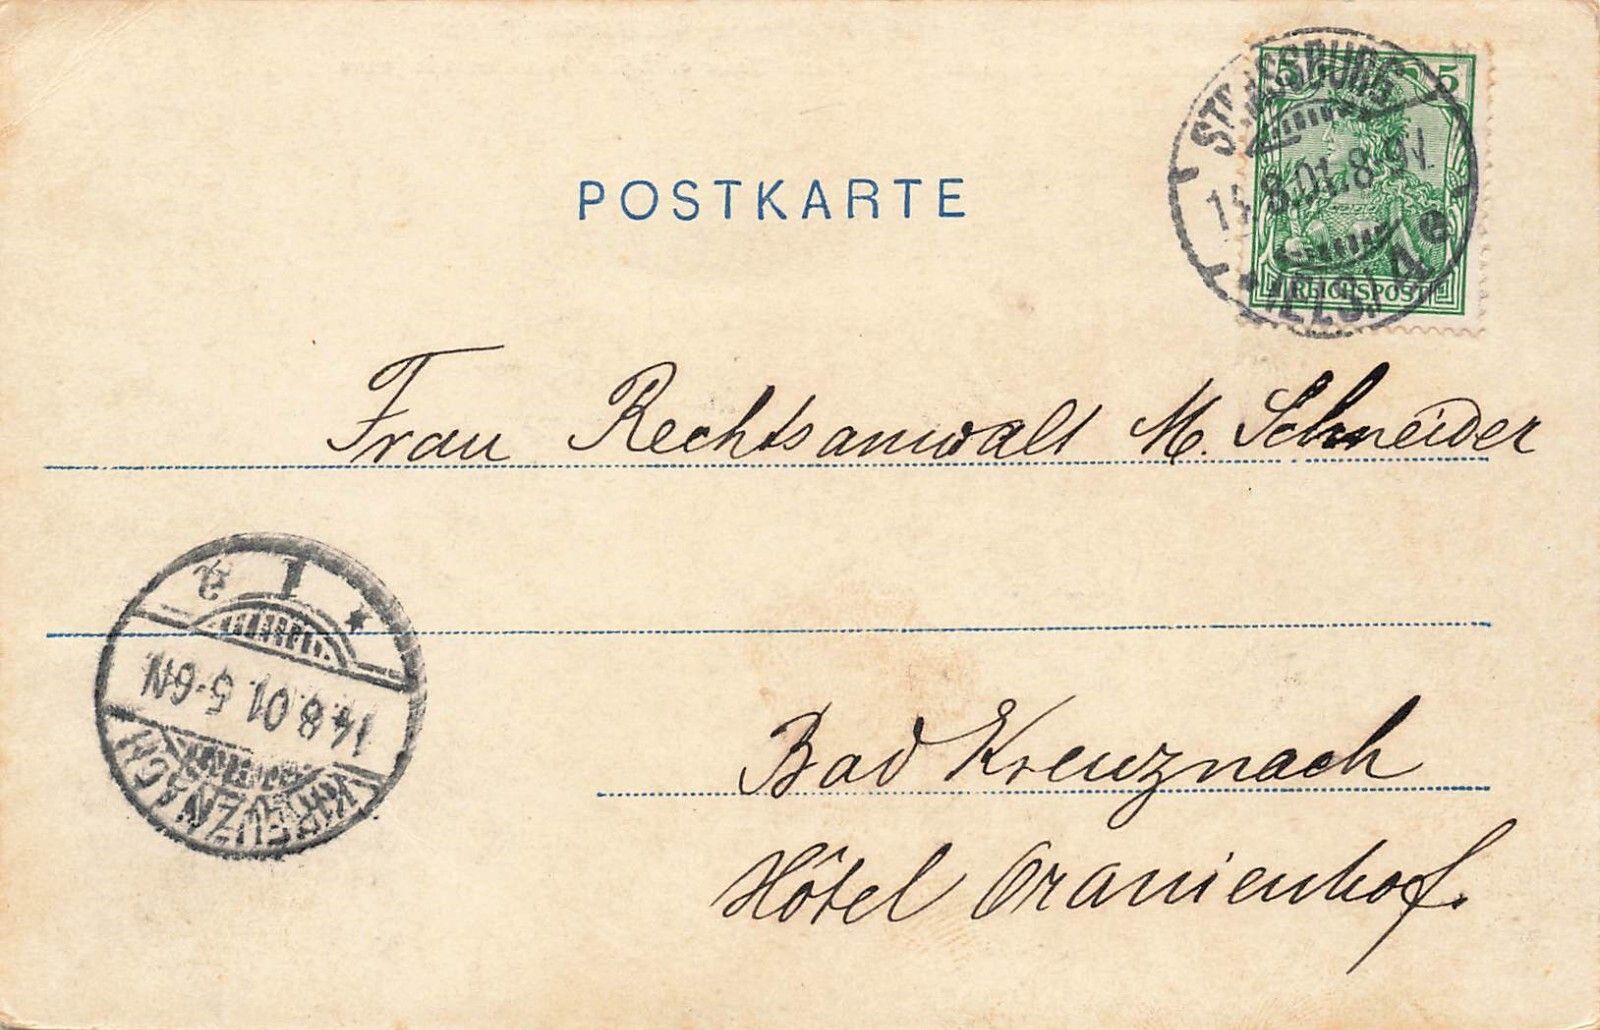 STRASSBURG
5 5
14.8.01.8-9V.
* (ELS.) 4 e
REICHSPOST
POSTKARTE
Frau Rechtsanwalt M. Schneider
* 1 a
14.8.01.5-6N.
KREUZNACH
Bad Kreuznach
Hôtel Oranienhof.